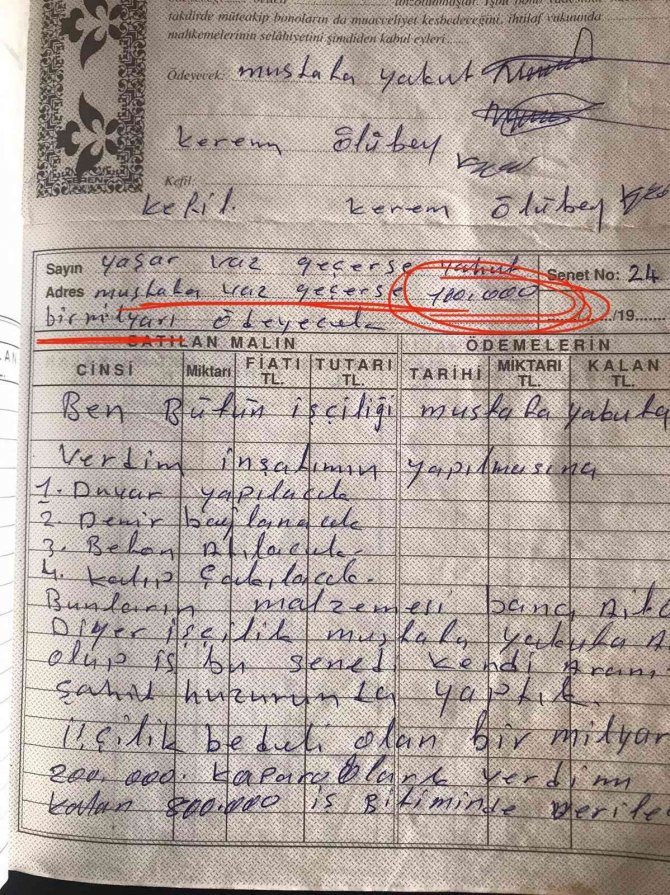 takdirde müteakip bonoların da muacceliyet kesbedeceğini, ihtilaf vukuunda
mahkemelerinin selâhiyetini şimdiden kabul eyleri
Ödeyecek: mustafa yakut
kerem ölübey
Kefil:
kefil. kerem ölübey
Sayın yaşar vaz geçerse yahut
Senet No: 24
Adres mustafa vaz geçerse 100.000
bir milyarı ödeyecek
/19
SATILAN MALIN ÖDEMELERİN
CİNSİ Miktarı FİATI TL. TUTARI TL. TARİHİ MİKTARI TL. KALAN TL.
Ben Bütün işçiliği mustafa yabuta
Verdim inşatımın yapılmasına
1. Duvar yapılacak
2. Demir bağlanacak
3. Beton Atılacak.
4. Kalıp Çakılacak.
Bunların malzemesi bana Ait
Diyer işçilik mustafa yakuta A
olup iş bu senedi kendi Aram
şahit huzurunda yaptık.
işçilik bedeli olan bir milyar
200.000. kaparo olarak verdim
kalan 800.000 iş Bitiminde verile